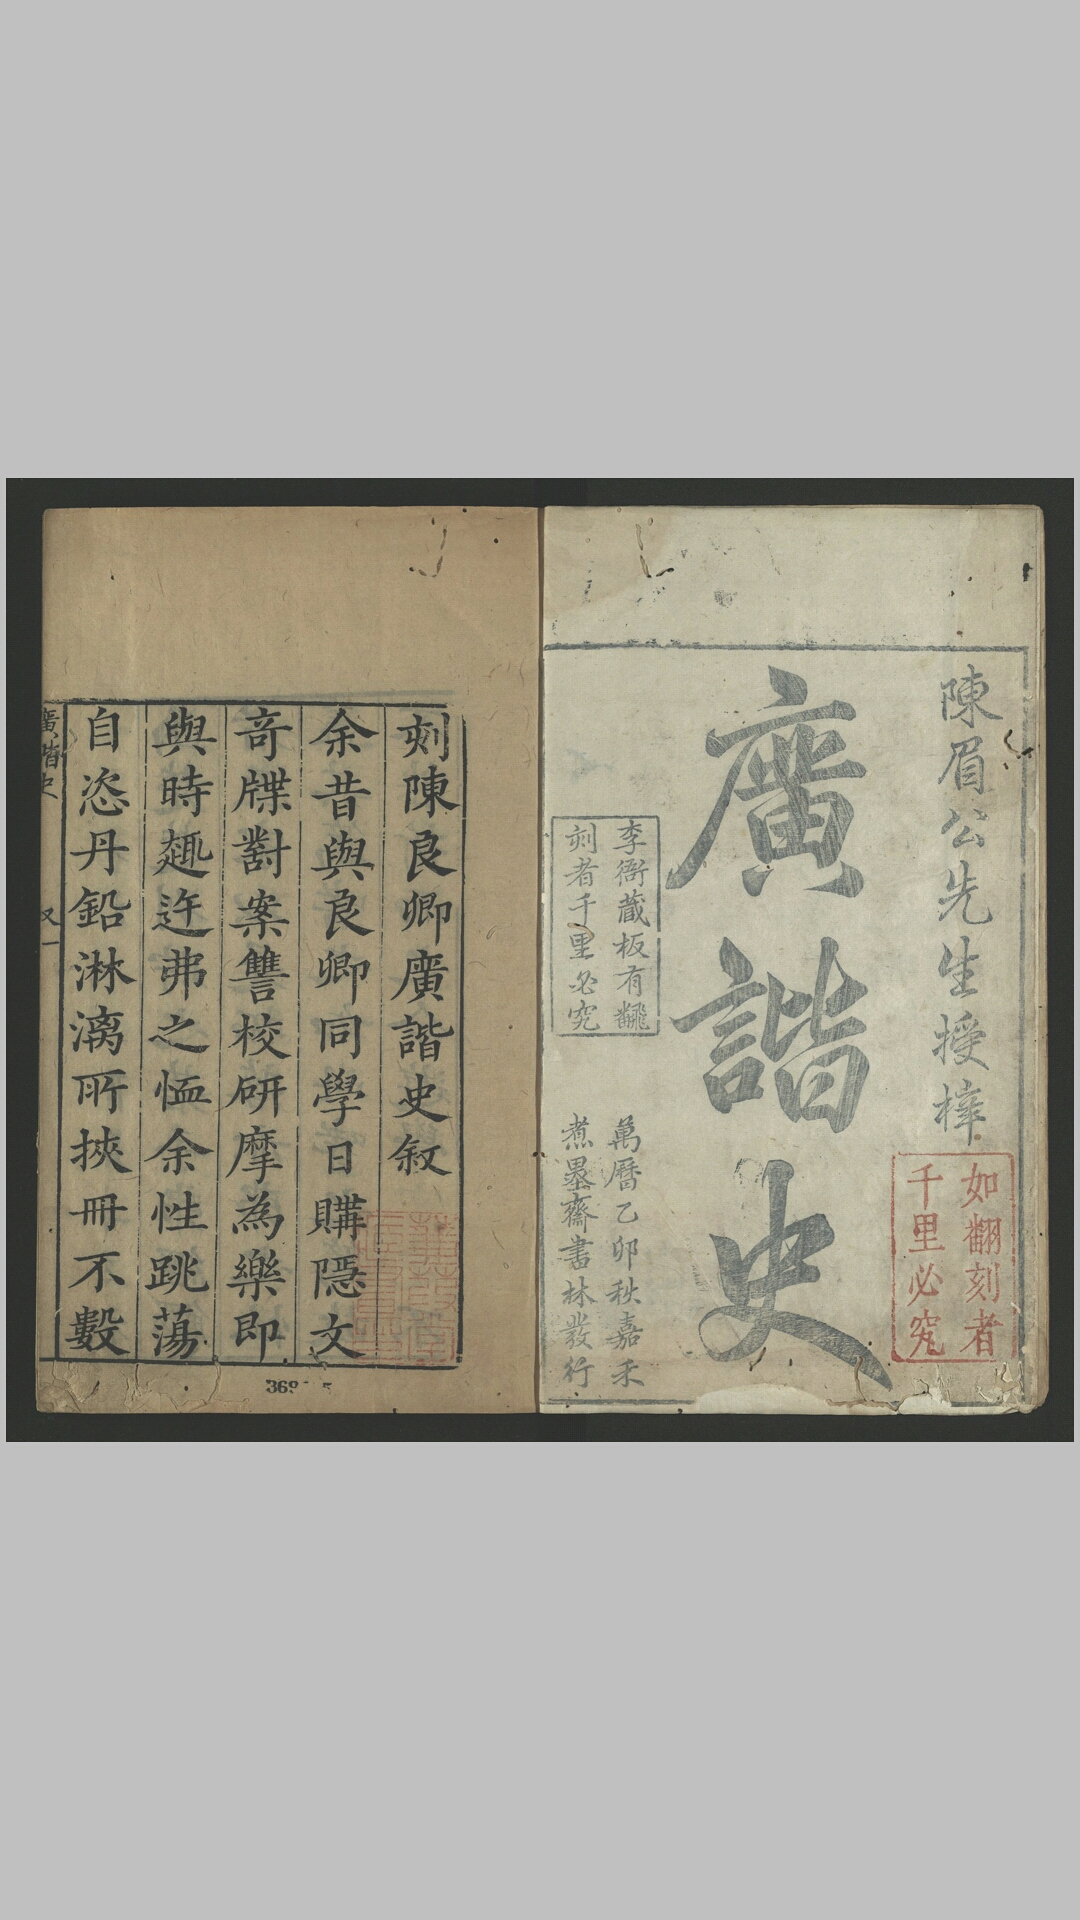 陳眉公先生授梓
如翻刻者
千里必究
廣諧史
李衙藏板有翻
刻者千里必究
萬曆乙卯秋嘉禾
煮墨齋書林發行
刻陳良卿廣諧史敘
余昔與良卿同學日購隱文
奇牒對案讐校研摩為樂即
與時趣迕弗之恤余性跳蕩
自恣丹鉛淋漓所挾冊不數
廣諧史
又一